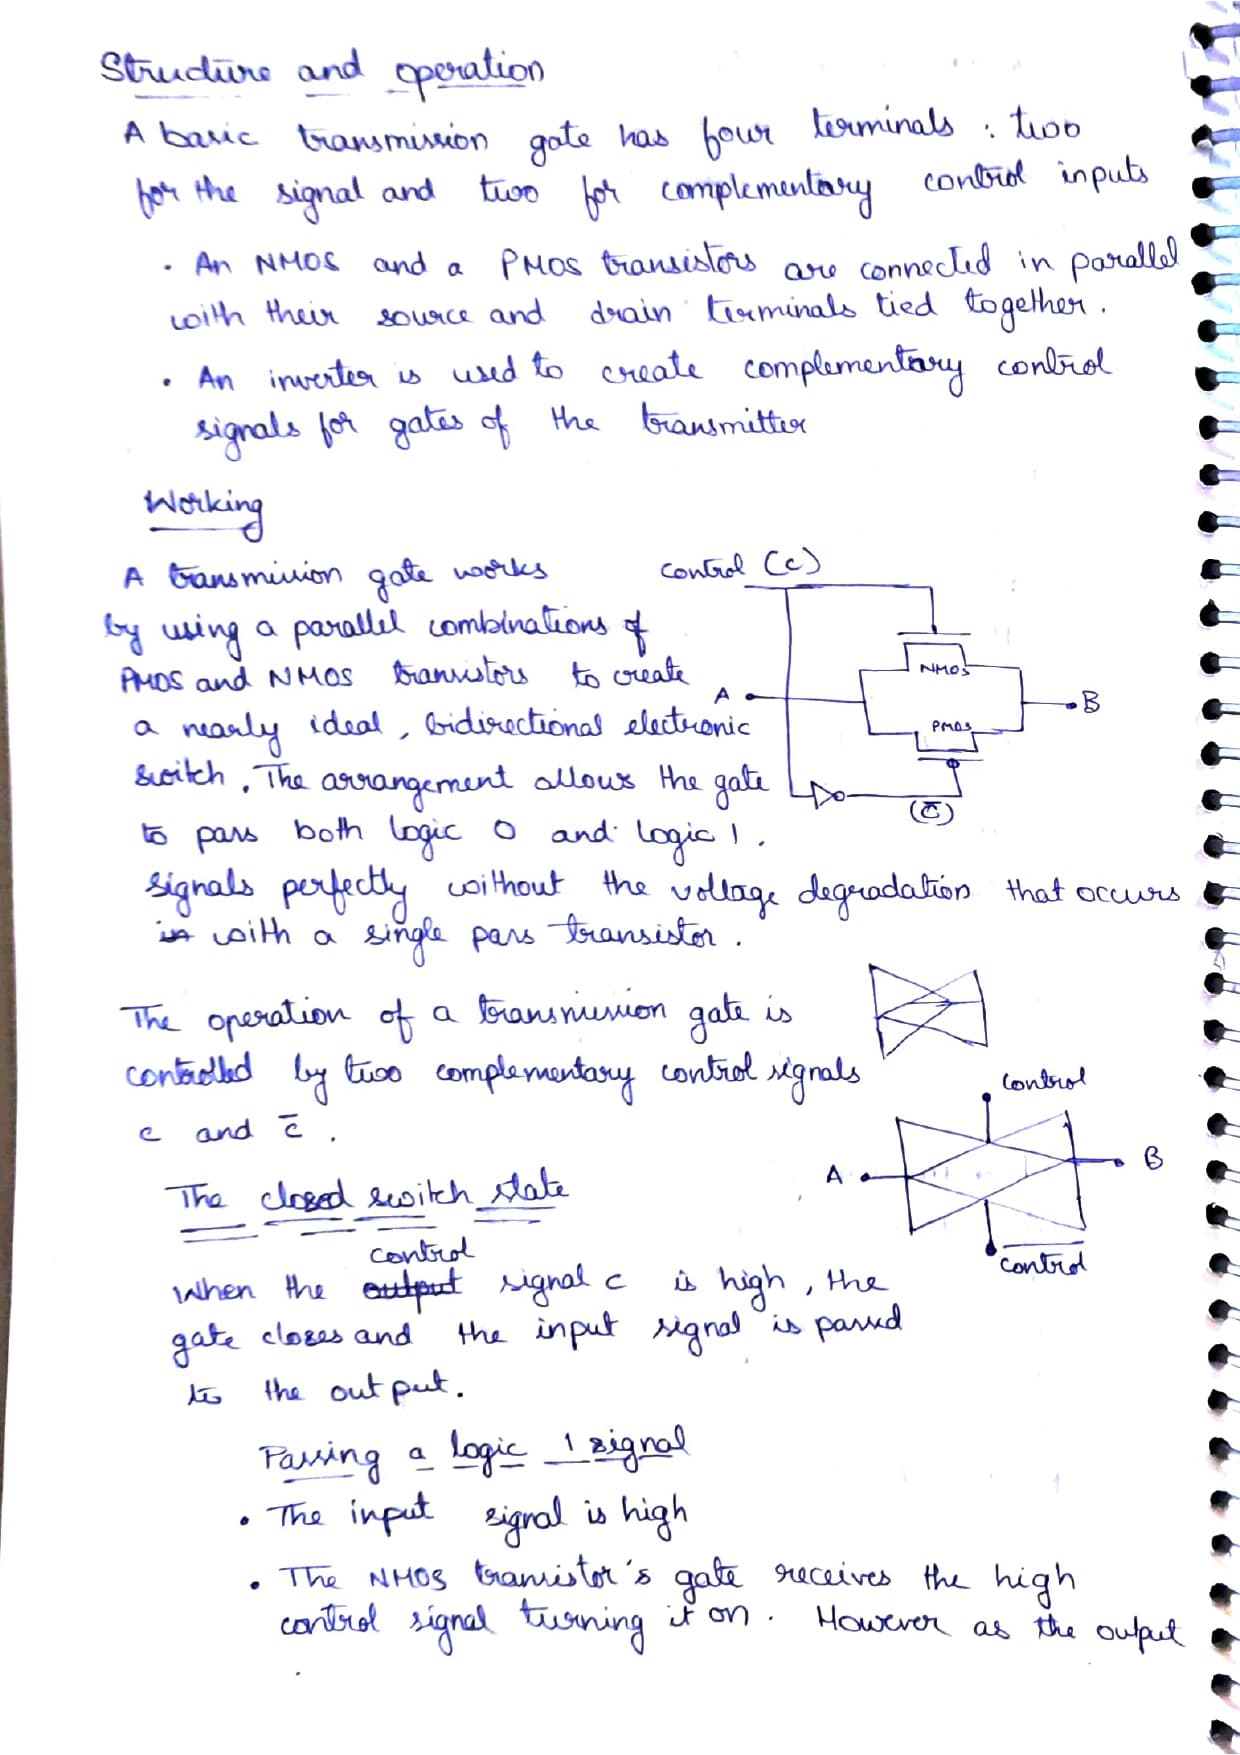 Structure and operation
A basic transmission gate has four terminals : two
for the signal and two for complementary control inputs
• An NMOS and a PMOS transistors are connected in parallel
with their source and drain terminals tied together.
• An inverter is used to create complementary control
signals for gates of the transmitter
Working
A transmission gate works
by using a parallel combinations of
PMOS and NMOS transistors to create
a nearly ideal, bidirectional electronic
switch. The arrangement allows the gate
to pass both logic 0 and logic 1.
signals perfectly without the voltage degradation that occurs
in with a single pass transistor.
control (C)
NMOS
A
B
PMOS
(C̄)
The operation of a transmission gate is
controlled by two complementary control signals
c and c̄.
control
A
B
control
The closed switch state
control
When the output signal c is high, the
gate closes and the input signal is passed
to the output.
Passing a logic 1 signal
• The input signal is high
• The NMOS transistor's gate receives the high
control signal turning it on. However as the output